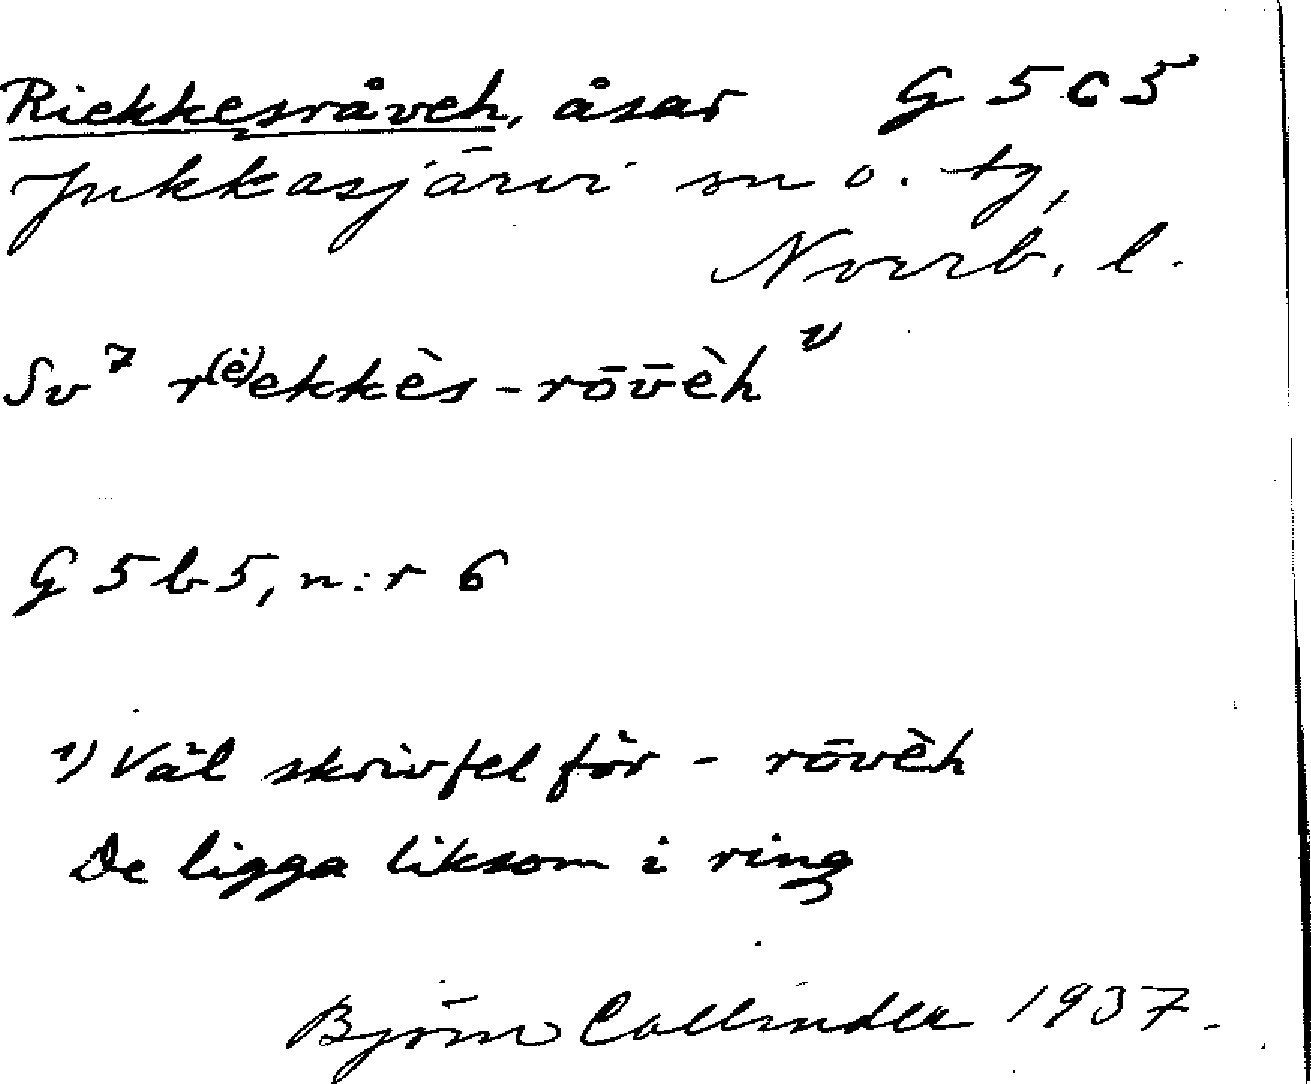 Riekkesråveh, åsar G 5 c 5
Jukkasjärvi sn o. tg,
Norrb. l.
Sv⁷ r⁽ė⁾ekkès-rōv̄èh ¹⁾
G 5 b 5, n:r 6
¹) Väl skrivfel för - rōvèh
De ligga liksom i ring
Björn Collinder 1937.